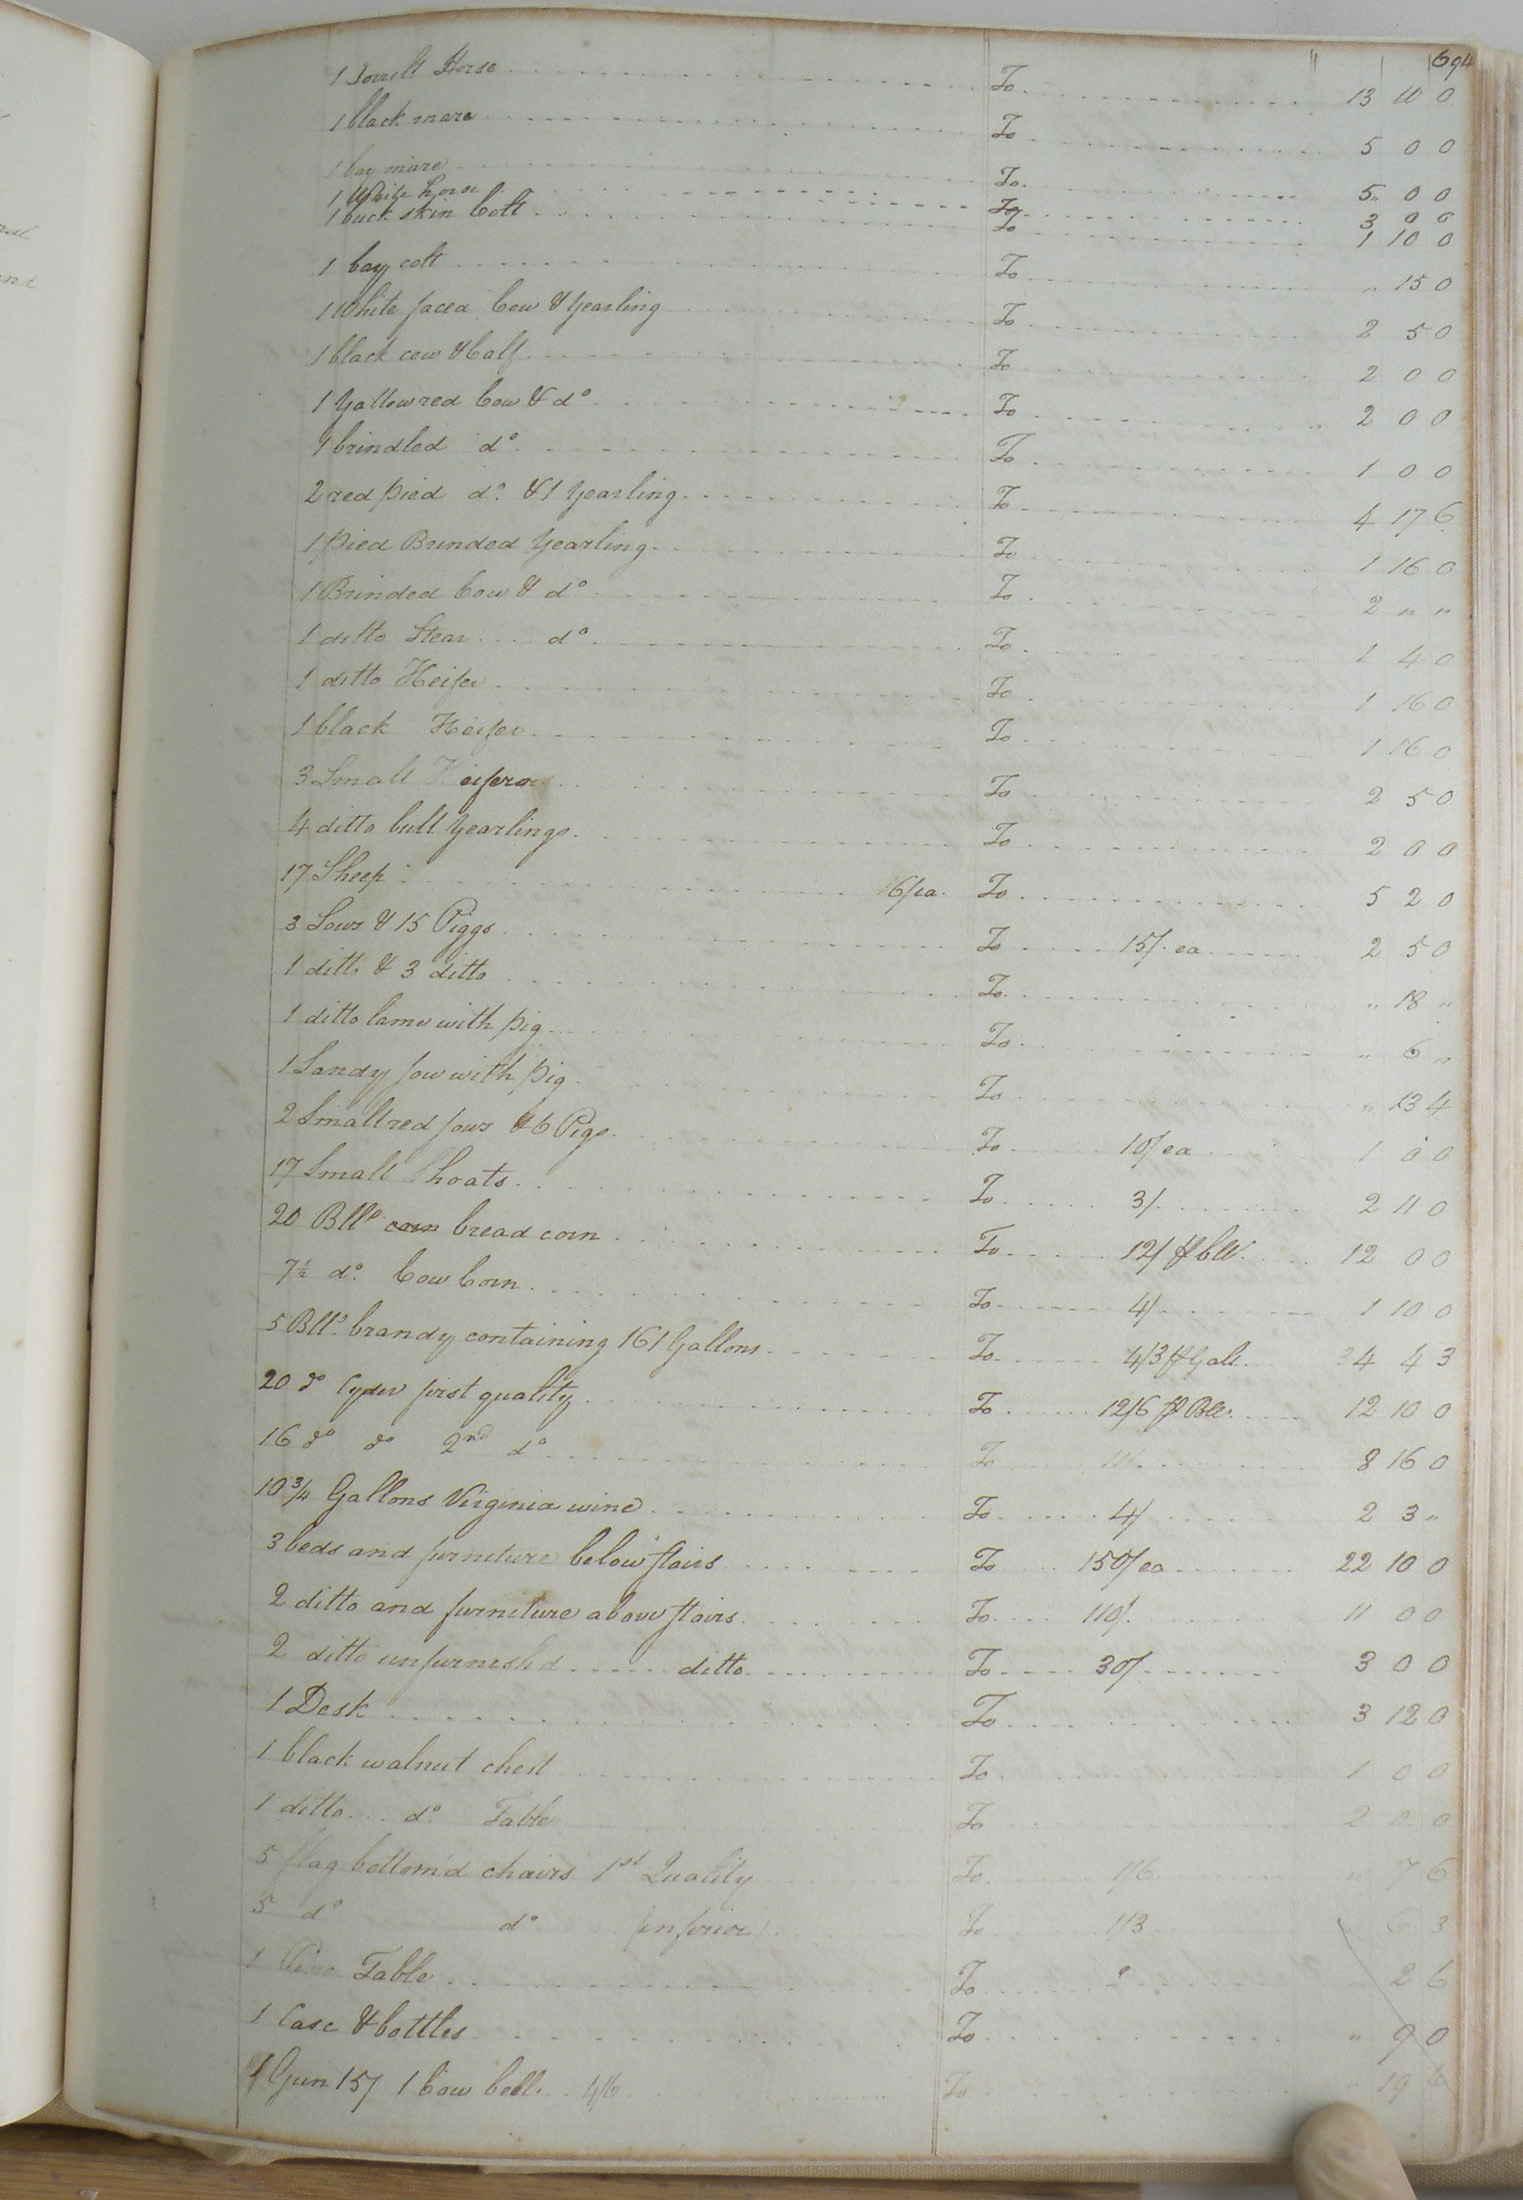 694
1 Sorrell Horse To 13 10 0
1 black mare To 5 0 0
1 bay mare To 5 " 0 0
1 White horse To 3 0 0
1 buck skin Colt To 1 10 0
1 bay colt To " 15 0
1 White faced Cow & Yearling To 2 5 0
1 black cow & Calf To 2 0 0
1 Yallow red Cow & do To 2 0 0
1 brindled do To 1 0 0
2 red pied do. & 1 Yearling To 4 17 6
1 pied Brinded Yearling To 1 16 0
1 Brinded Cow & do To 2 " "
1 ditto Stear do To 1 4 0
1 ditto Heifer To 1 16 0
1 black Heifer To 1 16 0
3 Small Heifers To 2 5 0
4 ditto bull Yearlings To 2 0 0
17 Sheep 6/ea. To 5 2 0
3 Sows & 15 Piggs To 15/. ea 2 5 0
1 ditto & 3 ditto To " 18 "
1 ditto lame with pig To " 6 "
1 Sandy sow with pig To " 13 4
2 Small red sows & 6 Pigs To 10/ ea 1 0 0
17 Small Shoats To 3/ 2 11 0
20 Blls corn bread corn To 12/ ⅌ bll. 12 0 0
7½ do. Cow Corn To 4/ 1 10 0
5 Blls. brandy containing 161 Gallons To 4/3 ⅌ Gall. 34 4 3
20 do Cyder first quality To 12/6 ⅌ Bll. 12 10 0
16 do do 2nd do To 11/ 8 16 0
10¾ Gallons Virginia wine To 4/ 2 3 "
3 beds and furniture below stairs To 150/ ea 22 10 0
2 ditto and furniture above stairs To 110/. 11 0 0
2 ditto unfurnish'd ditto To 30/ 3 0 0
1 Desk To 3 12 0
1 black walnut chest To 1 0 0
1 ditto do Table To 2 0 0
5 flag bottom'd chairs 1st Quality To 1/6 " 7 6
5 do do (inferior) To 1/3 6 3
1 Pine Table To 2 6
1 Case & bottles To " 9 0
1 Gun 15/ 1 Cow bell 4/6 To 19 6